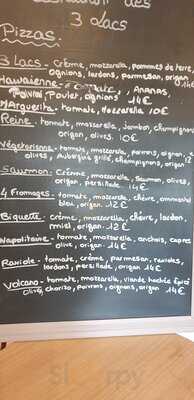 Restauration des
3 Lacs
Pizzas.
3 Lacs - Crème, mozzarella, pommes de terre,
oignions, lardons, parmesan, origan 14€
Hawaïenne - tomate, Ananas,
Poivron, Poulet, oignions 14€
Marguerita - tomate, Mozzarella 10€
Reine - tomate, mozzarella, Jambon, champignons
origan, olives. 10€
Végétarienne - tomate, mozzarella, poivrons, oignon,
olives, Aubergine grillé, champignons, origan 12€
Saumon - Crème, mozzarella, saumon, olives
origan, persillade 14€
4 Fromages - tomate, mozzarella, chèvre, emmental
bleu, origan. 12€
Biquette - crème, mozzarella, chèvre, lardon
miel, origan. 12€
Napolitaine - tomate, mozzarella, anchois, capres
olive, origan 14€
Raviole - tomate, crème, parmesan, ravioles,
lardons, persillade, origan 14€
Volcano - tomate, mozzarella, viande hachée épicé
Olive, chorizo, poivrons, oignons, origan 14€